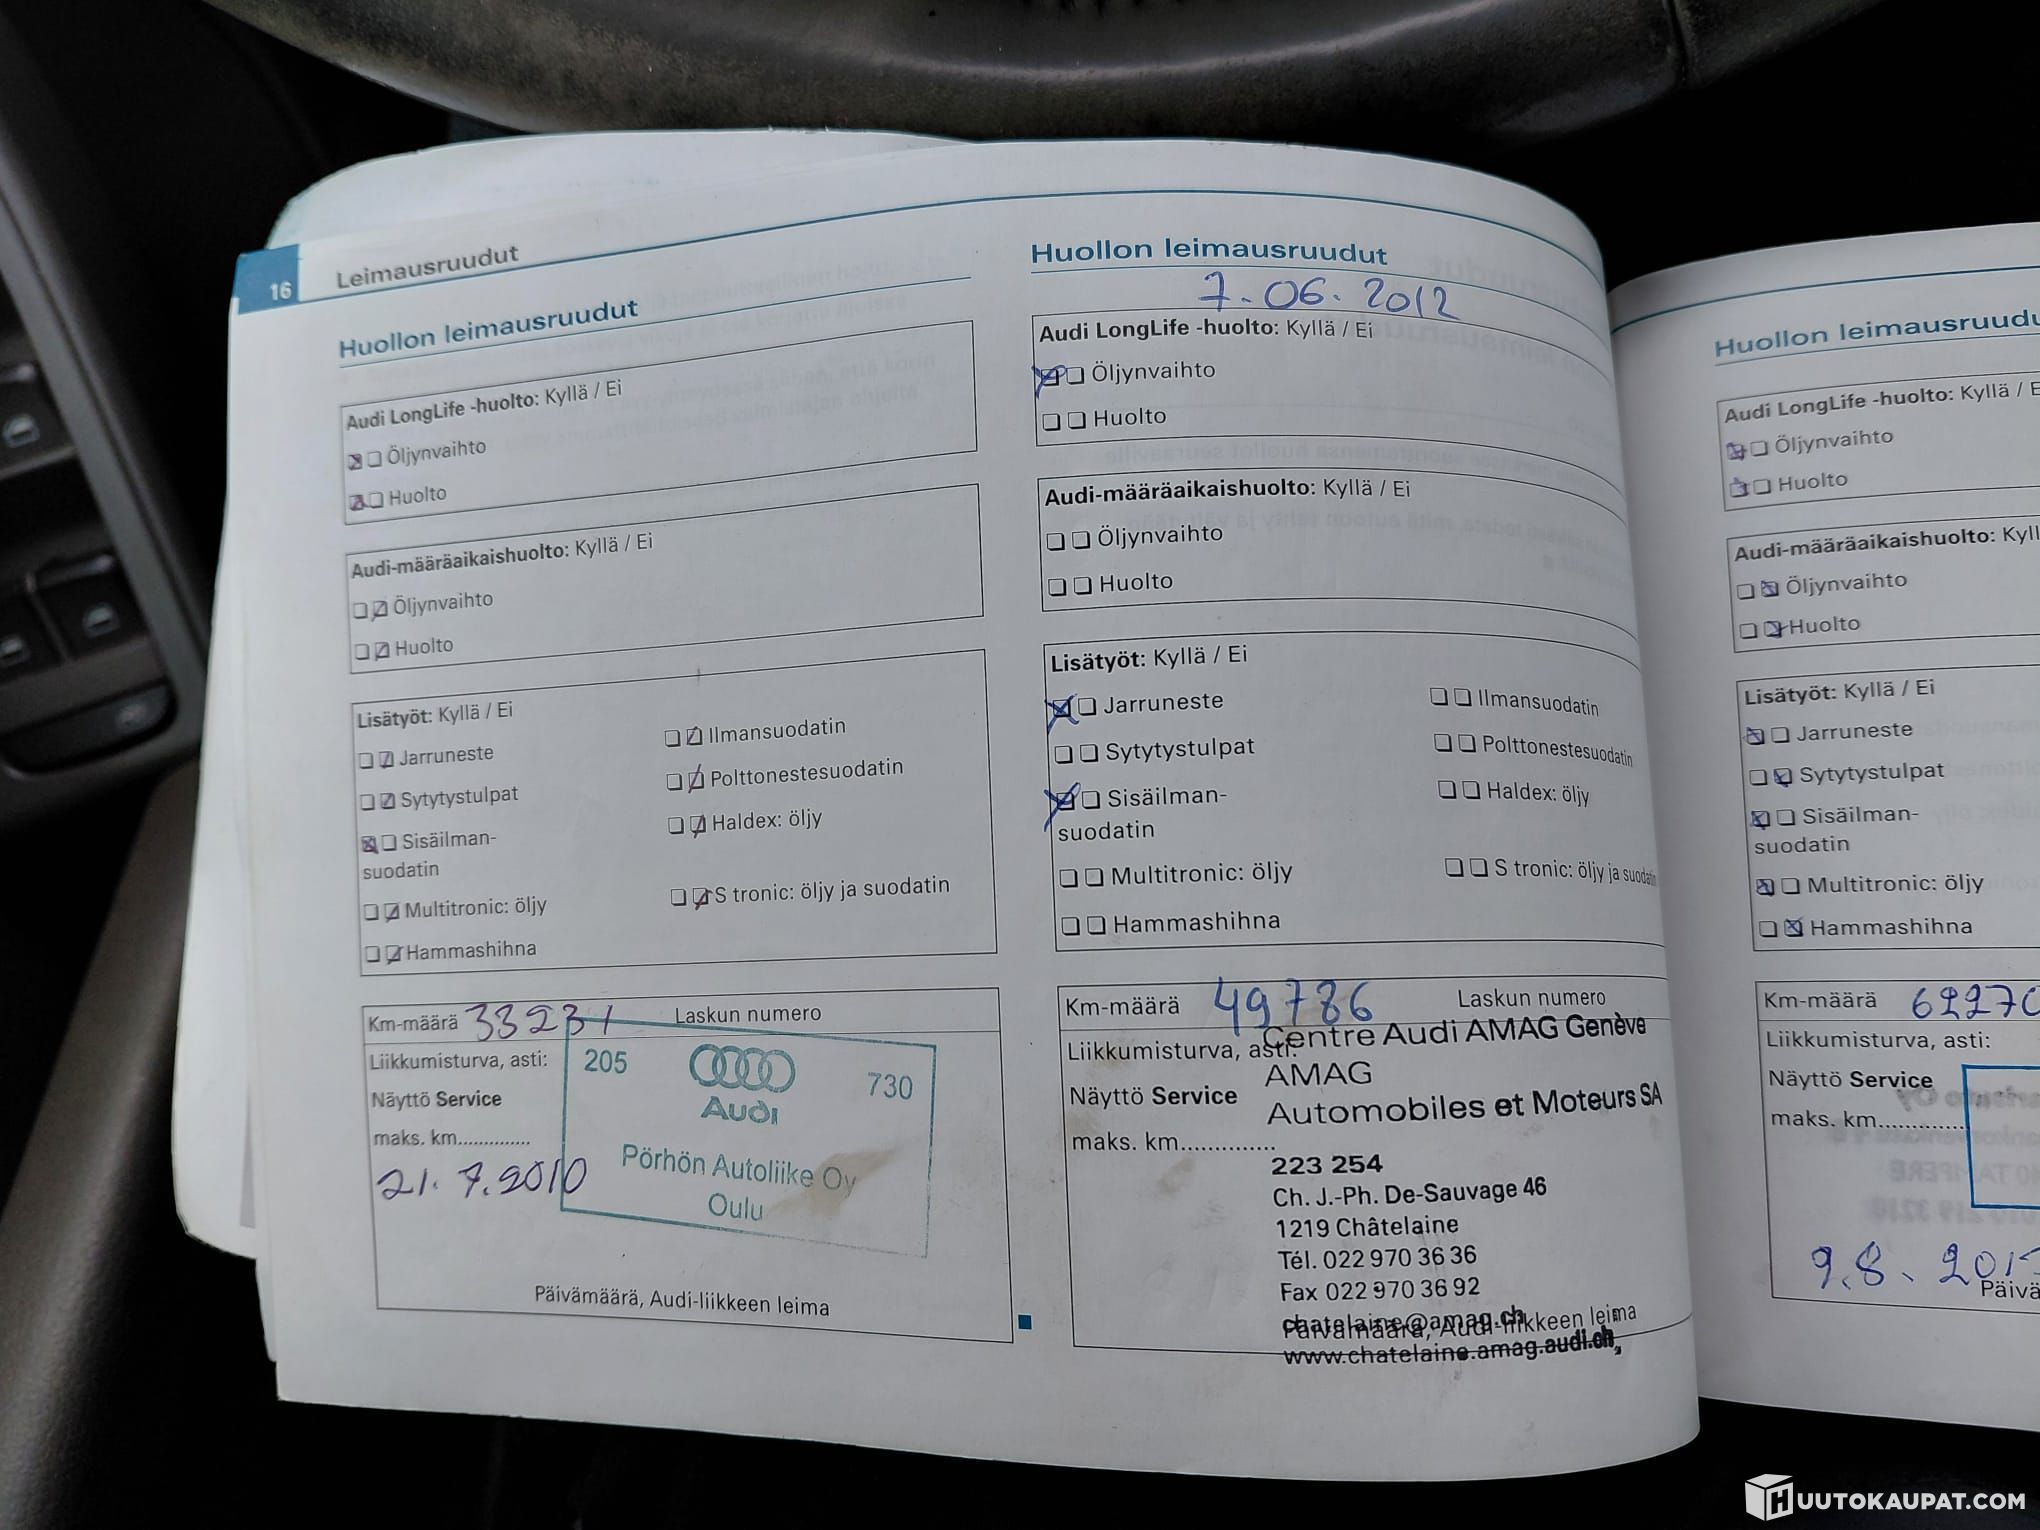 16
Leimausruudut
Huollon leimausruudut
Audi LongLife -huolto: Kyllä / Ei
Öljynvaihto
Huolto
Audi-määräaikaishuolto: Kyllä / Ei
Öljynvaihto
Huolto
Lisätyöt: Kyllä / Ei
Jarruneste
Ilmansuodatin
Sytytystulpat
Polttonestesuodatin
Sisäilman-
suodatin
Haldex: öljy
Multitronic: öljy
S tronic: öljy ja suodatin
Hammashihna
Km-määrä 33231
Laskun numero
Liikkumisturva, asti:
Näyttö Service
maks. km..............
21.7.2010
205
730
Audi
Pörhön Autoliike Oy
Oulu
Päivämäärä, Audi-liikkeen leima
Huollon leimausruudut
7.06.2012
Audi LongLife -huolto: Kyllä / Ei
Öljynvaihto
Huolto
Audi-määräaikaishuolto: Kyllä / Ei
Öljynvaihto
Huolto
Lisätyöt: Kyllä / Ei
Jarruneste
Ilmansuodatin
Sytytystulpat
Polttonestesuodatin
Sisäilman-
suodatin
Haldex: öljy
Multitronic: öljy
S tronic: öljy ja suodatin
Hammashihna
Km-määrä 49786
Laskun numero
Liikkumisturva, asti:
Näyttö Service
maks. km..............
Centre Audi AMAG Genève
AMAG
Automobiles et Moteurs SA
223 254
Ch. J.-Ph. De-Sauvage 46
1219 Châtelaine
Tél. 022 970 36 36
Fax 022 970 36 92
chatelaine@amag.ch
Päivämäärä, Audi-liikkeen leima
www.chatelaine.amag.audi.ch
Huollon leimausruudu
Audi LongLife -huolto: Kyllä / E
Öljynvaihto
Huolto
Audi-määräaikaishuolto: Kyll
Öljynvaihto
Huolto
Lisätyöt: Kyllä / Ei
Jarruneste
Sytytystulpat
Sisäilman-
suodatin
Multitronic: öljy
Hammashihna
Km-määrä 62270
Liikkumisturva, asti:
Näyttö Service
maks. km..............
9.8.
Päivä
HUUTOKAUPAT.COM